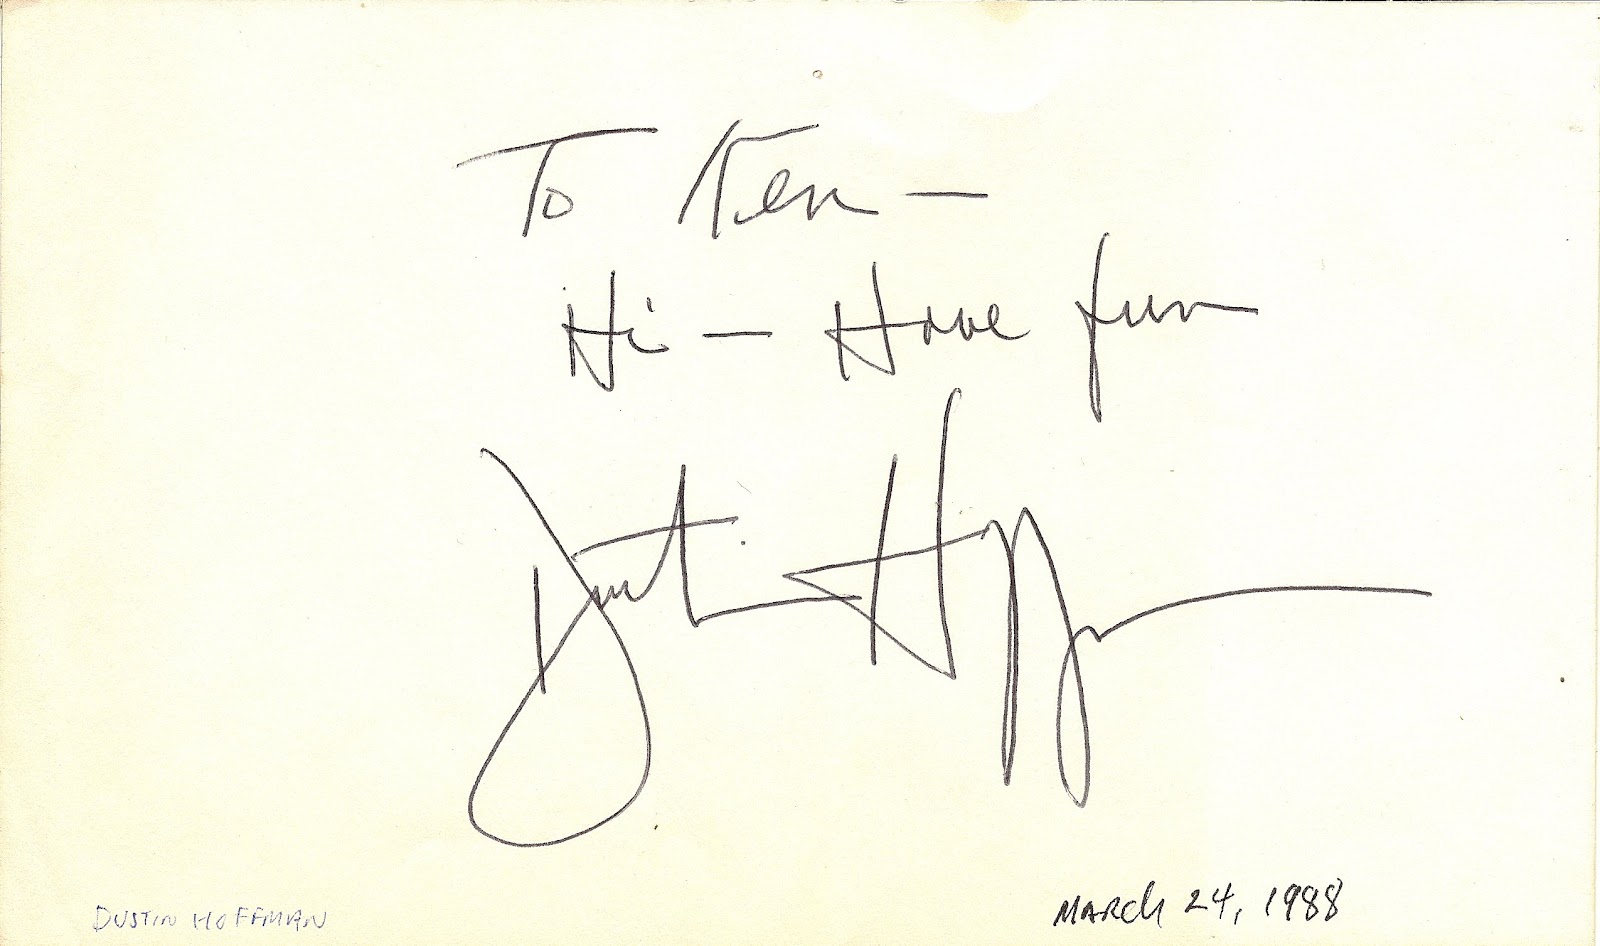 To Ken —
Hi — Have fun
Dustin Hoffman
DUSTIN HOFFMAN
MARCH 24, 1988